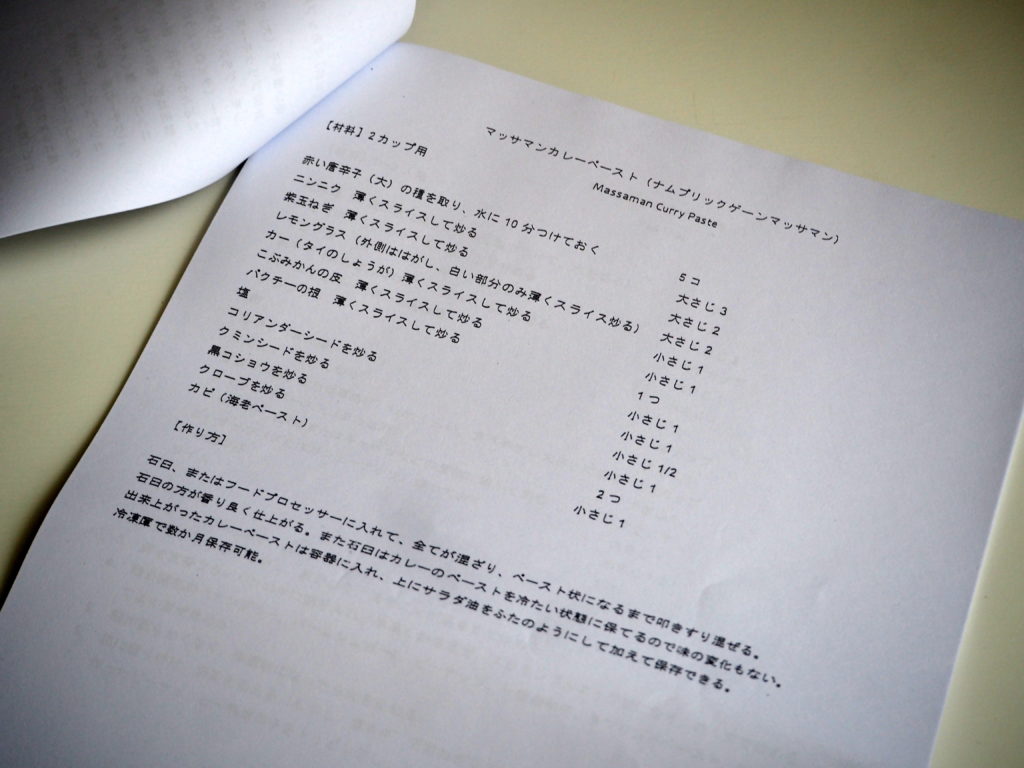 マッサマンカレーペースト（ナムプリックゲーンマッサマン）
Massaman Curry Paste
【材料】2カップ用
赤い唐辛子（大）の種を取り、水に10分つけておく 5コ
ニンニク 薄くスライスして炒る 大さじ3
紫玉ねぎ 薄くスライスして炒る 大さじ2
レモングラス（外側ははがし、白い部分のみ薄くスライス炒る） 大さじ2
カー（タイのしょうが）薄くスライスして炒る 小さじ1
こぶみかんの皮 薄くスライスして炒る 小さじ1
パクチーの根 薄くスライスして炒る 1つ
塩 小さじ1
コリアンダーシードを炒る 小さじ1
クミンシードを炒る 小さじ1/2
黒コショウを炒る 小さじ1
クローブを炒る 2つ
カピ（海老ペースト） 小さじ1
【作り方】
石臼、またはフードプロセッサーに入れて、全てが混ざり、ペースト状になるまで叩きすり混ぜる。
石臼の方が香り良く仕上がる。また石臼はカレーのペーストを冷たい状態に保てるので味の変化もない。
出来上がったカレーペーストは容器に入れ、上にサラダ油をふたのようにして加えて保存できる。
冷凍庫で数か月保存可能。